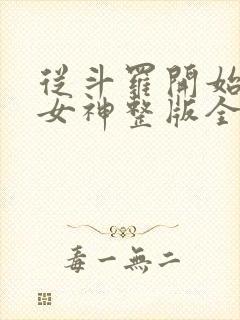 從斗羅開始
女神整版全
毒一無二